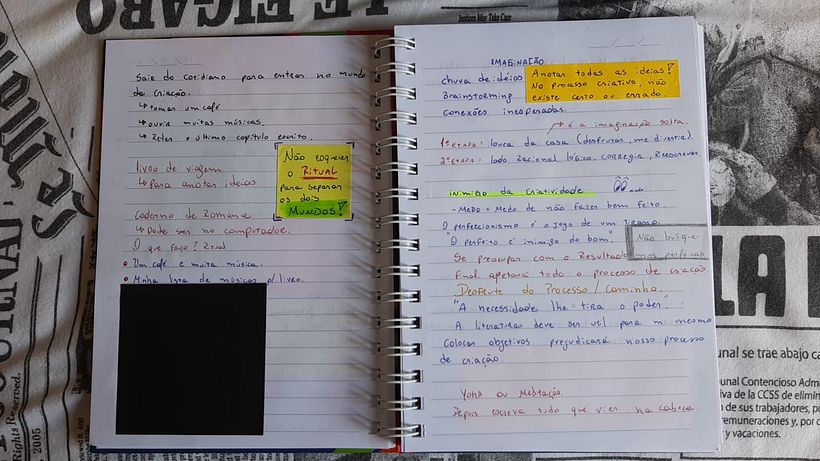 Sair do cotidiano para entrar no mundo
da criação.
↳ tomar um café
↳ ouvir muitas músicas.
↳ Reler o último capítulo escrito.
livro de viagem
↳ Para anotar ideias
Caderno de Romance
↳ Pode ser no computador.
O que faço? Ritual
• Um café e muita música.
• Minha lista de músicas p/ livro.
Não esquecer
o RITUAL
para separar
os dois
MUNDOS!
IMAGINAÇÃO
chuva de idéias
Brainstorming
conexões inesperadas.
Anotar todas as ideias!
No processo criativo, não
existe certo ou errado
↗ é a imaginação solta.
1ª ETAPA: louca da casa (desfrutar, me divertir).
2ª ETAPA: lado Racional, lógica, corrigir, Reescrever.
inimigo da criatividade
- Medo. Medo de não fazer bem feito.
O perfeccionismo é o jogo de um Tirano.
"O perfeito é inimigo do bom".
Não busque
mos perfeição
Se preocupar com o Resultado
Final afetará todo o processo de criação.
Desfrute do Processo / Caminho.
"A necessidade lhe tira o poder".
A literatura deve ser util para mi mesmo
colocar objetivos prejudicará nosso processo
de criação.
YOGA ou Meditação.
Depois escreva tudo que vier na cabeça
LE FIGARO
Justices May Take Care
Reserved.
2005
unal se trae abajo ca
unal Contencioso Adm
iva de la CCSS de elimin
o de sus trabajadores, po
remuneraciones y, por c
y vacaciones.